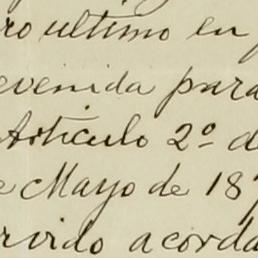 ro ultimo en p
evenida para
Artículo 2º d
e Mayo de 187
rvido acorda